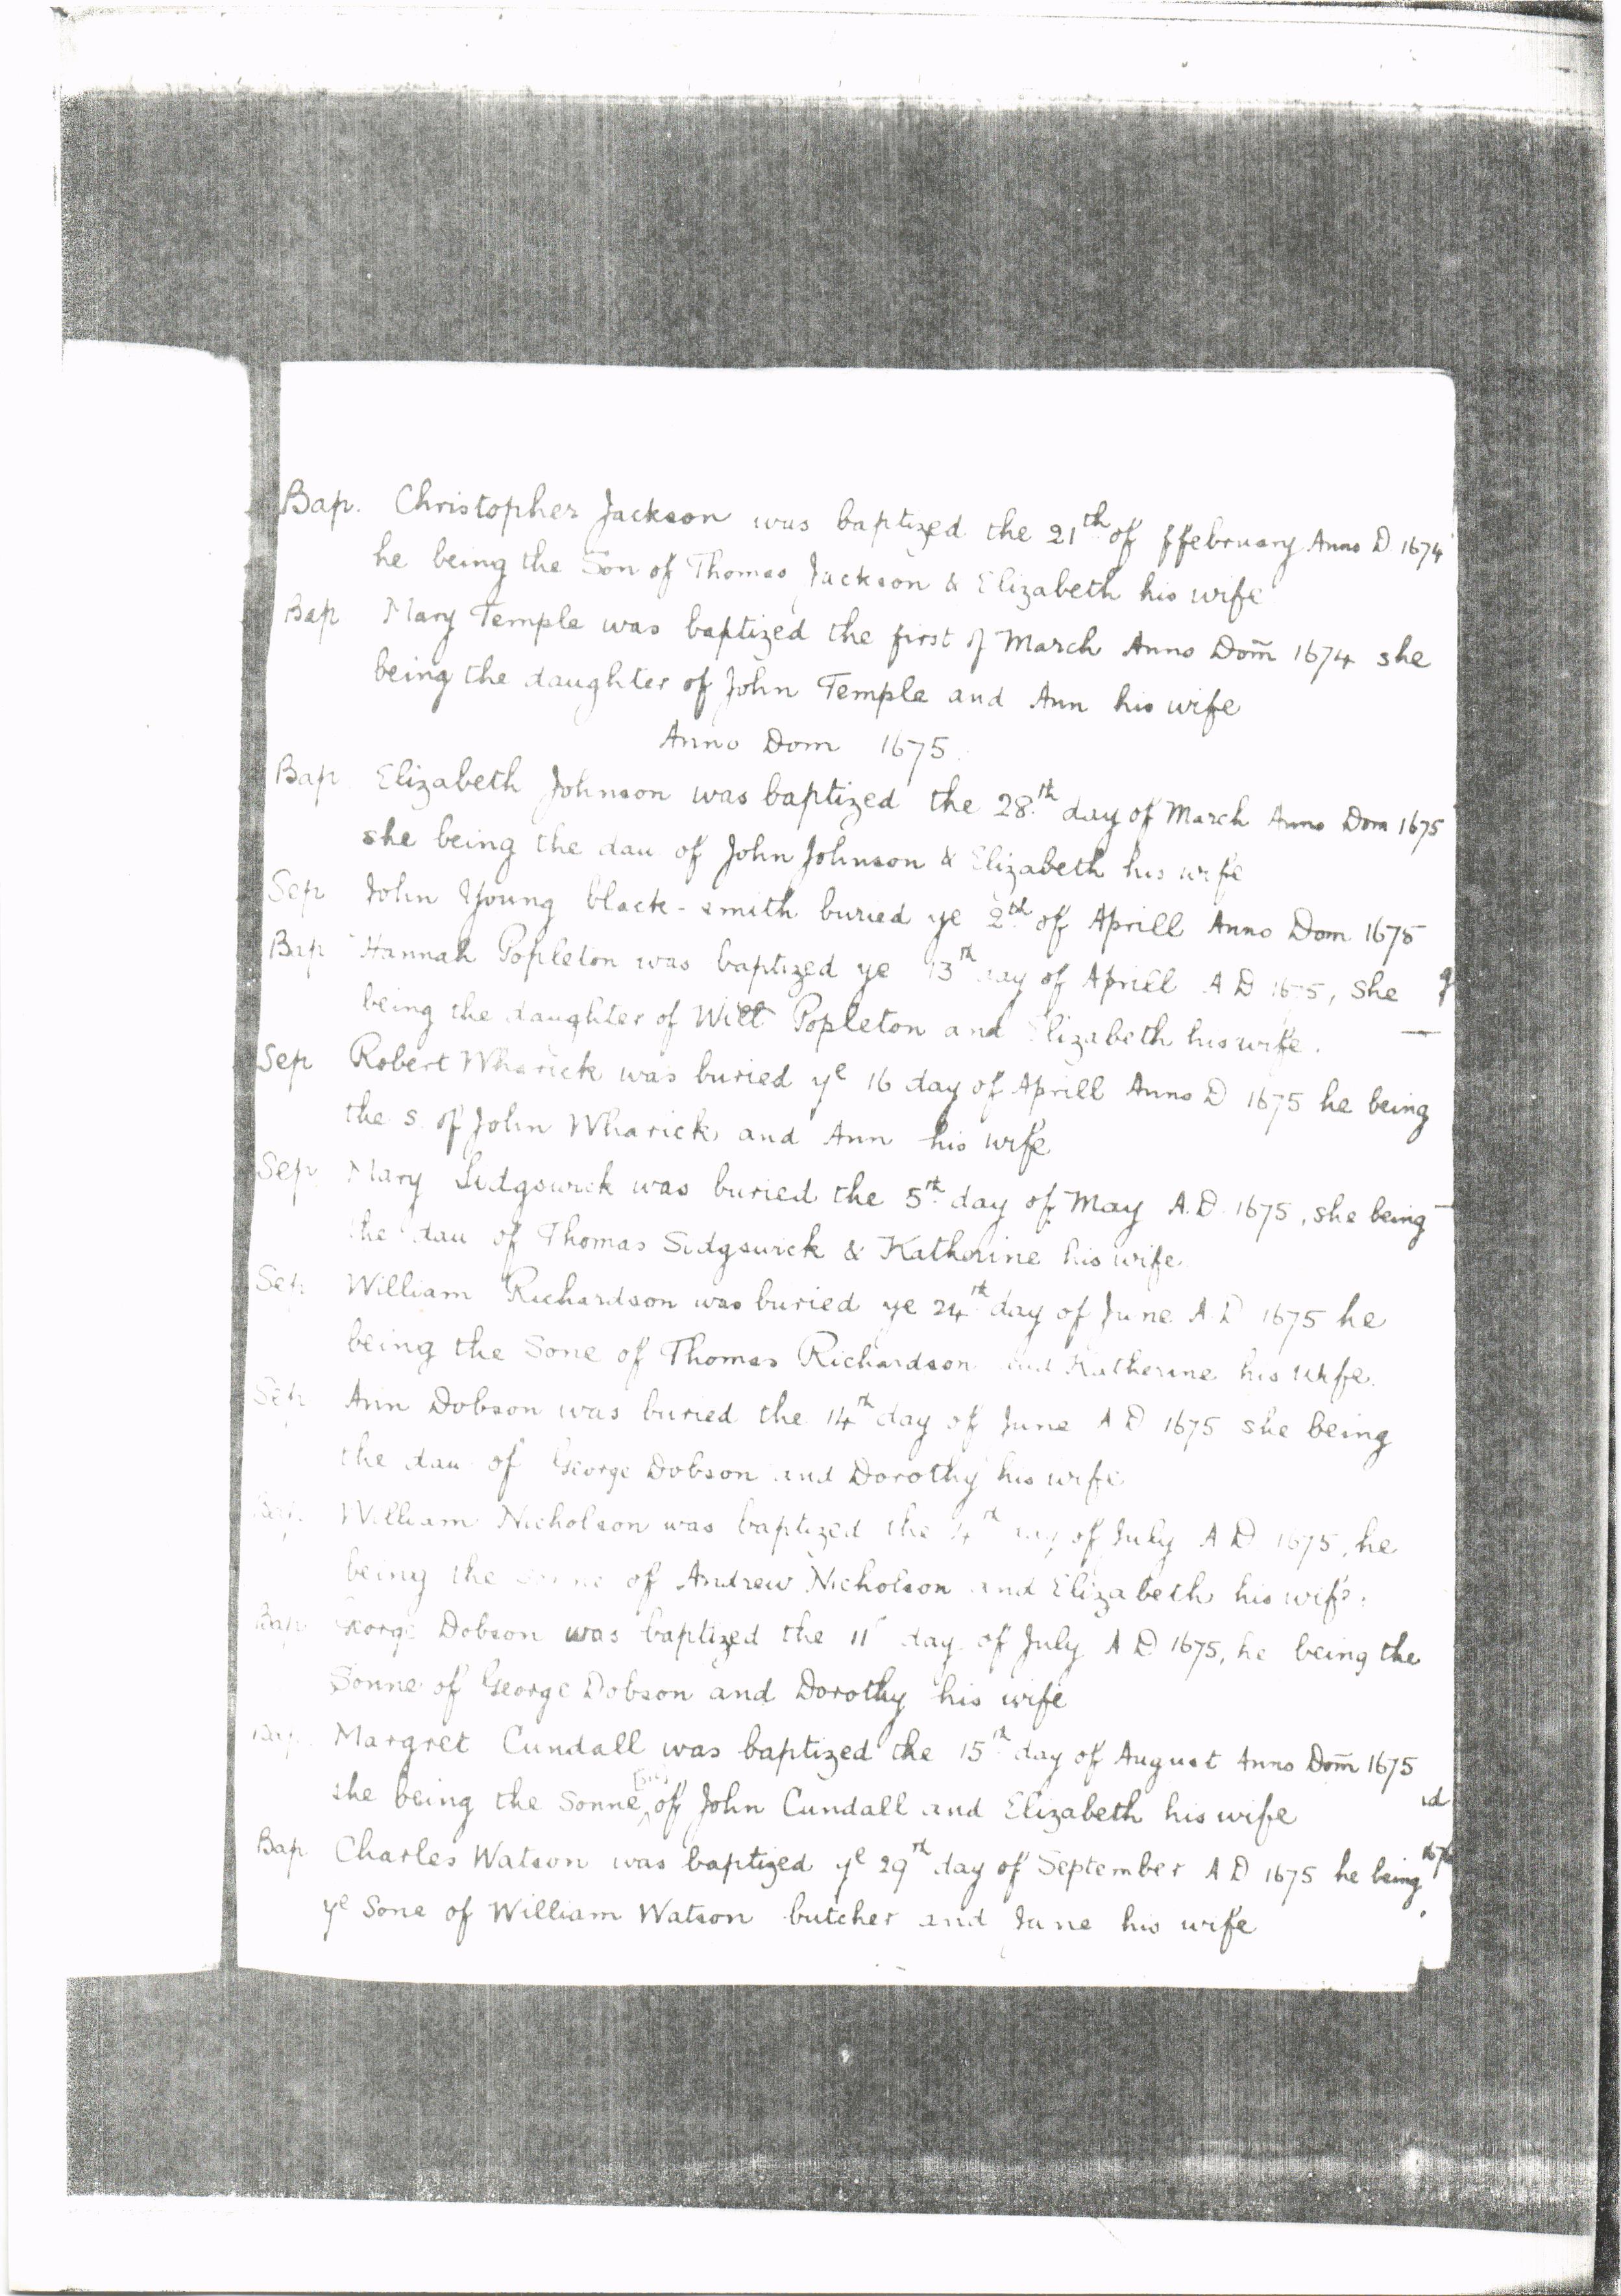 Bap. Christopher Jackson was baptized the 21th of ffebruary Anno D 1674
he being the Son of Thomas Jackson & Elizabeth his wife
Bap Mary Temple was baptized the first of March Anno Dom̄ 1674 she
being the daughter of John Temple and Ann his wife
Anno Dom 1675.
Bap Elizabeth Johnson was baptized the 28th day of March Anno Dom 1675
she being the dau of John Johnson & Elizabeth his wife
Sep John Young black-smith buried ye 2th of Aprill Anno Dom 1675
Bap Hannah Popleton was baptized ye 13th day of Aprill A D 1675, she
being the daughter of Will Popleton and Elizabeth his wife.
Sep Robert Wharick was buried ye 16 day of Aprill Anno D 1675 he being
the s. of John Wharick and Ann his wife
Sep Mary Sidgswick was buried the 5th day of May A.D. 1675, she being
the dau of Thomas Sidgswick & Katherine his wife.
Sep William Richardson was buried ye 24th day of June A.D 1675 he
being the Sone of Thomas Richardson and Katherine his wife.
Sep Ann Dobson was buried the 14th day of June A D 1675 she being
the dau of George Dobson and Dorothy his wife
Bap. William Nicholson was baptized the 4th day of July A D 1675, he
being the Sonne of Andrew Nicholson and Elizabeth his wife.
Bap George Dobson was baptized the 11 day of July A D 1675, he being the
Sonne of George Dobson and Dorothy his wife
Bap. Margret Cundall was baptized the 15th day of August Anno Dom̄ 1675
she being the Sonne [sic] of John Cundall and Elizabeth his wife
Bap Charles Watson was baptized ye 29th day of September A D 1675 he being
ye Sone of William Watson butcher and Jane his wife